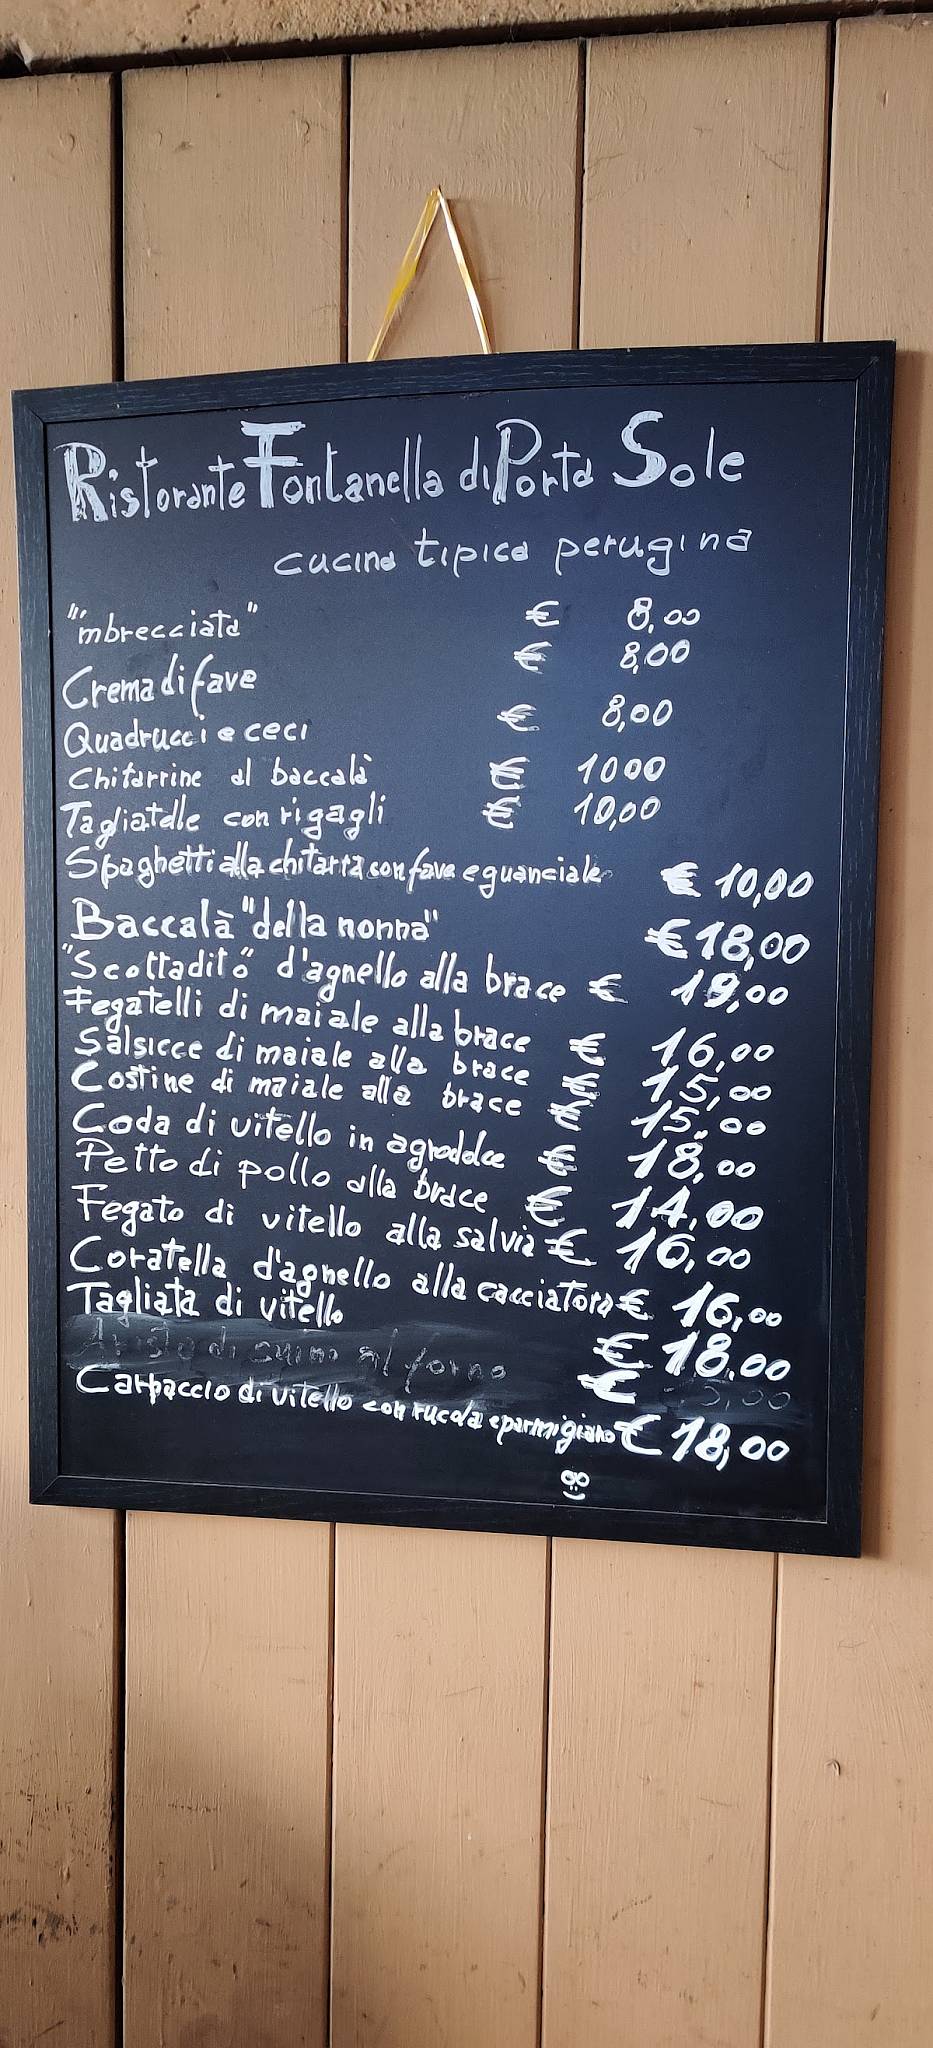 Ristorante Fontanella di Porta Sole
cucina tipica perugina
"'mbrecciata" € 8,00
Crema di fave € 8,00
Quadrucci e ceci € 8,00
Chitarrine al baccalà € 1000
Tagliatelle con rigagli € 10,00
Spaghetti alla chitarra con fave e guanciale € 10,00
Baccalà "della nonna" € 18,00
"Scottadito" d'agnello alla brace € 19,00
Fegatelli di maiale alla brace € 16,00
Salsicce di maiale alla brace € 15,00
Costine di maiale alla brace € 15,00
Coda di vitello in agrodolce € 18,00
Petto di pollo alla brace € 14,00
Fegato di vitello alla salvia € 16,00
Coratella d'agnello alla cacciatora € 16,00
Tagliata di vitello € 18.00
di al forno €
Carpaccio di vitello con rucola e parmigiano € 18,00